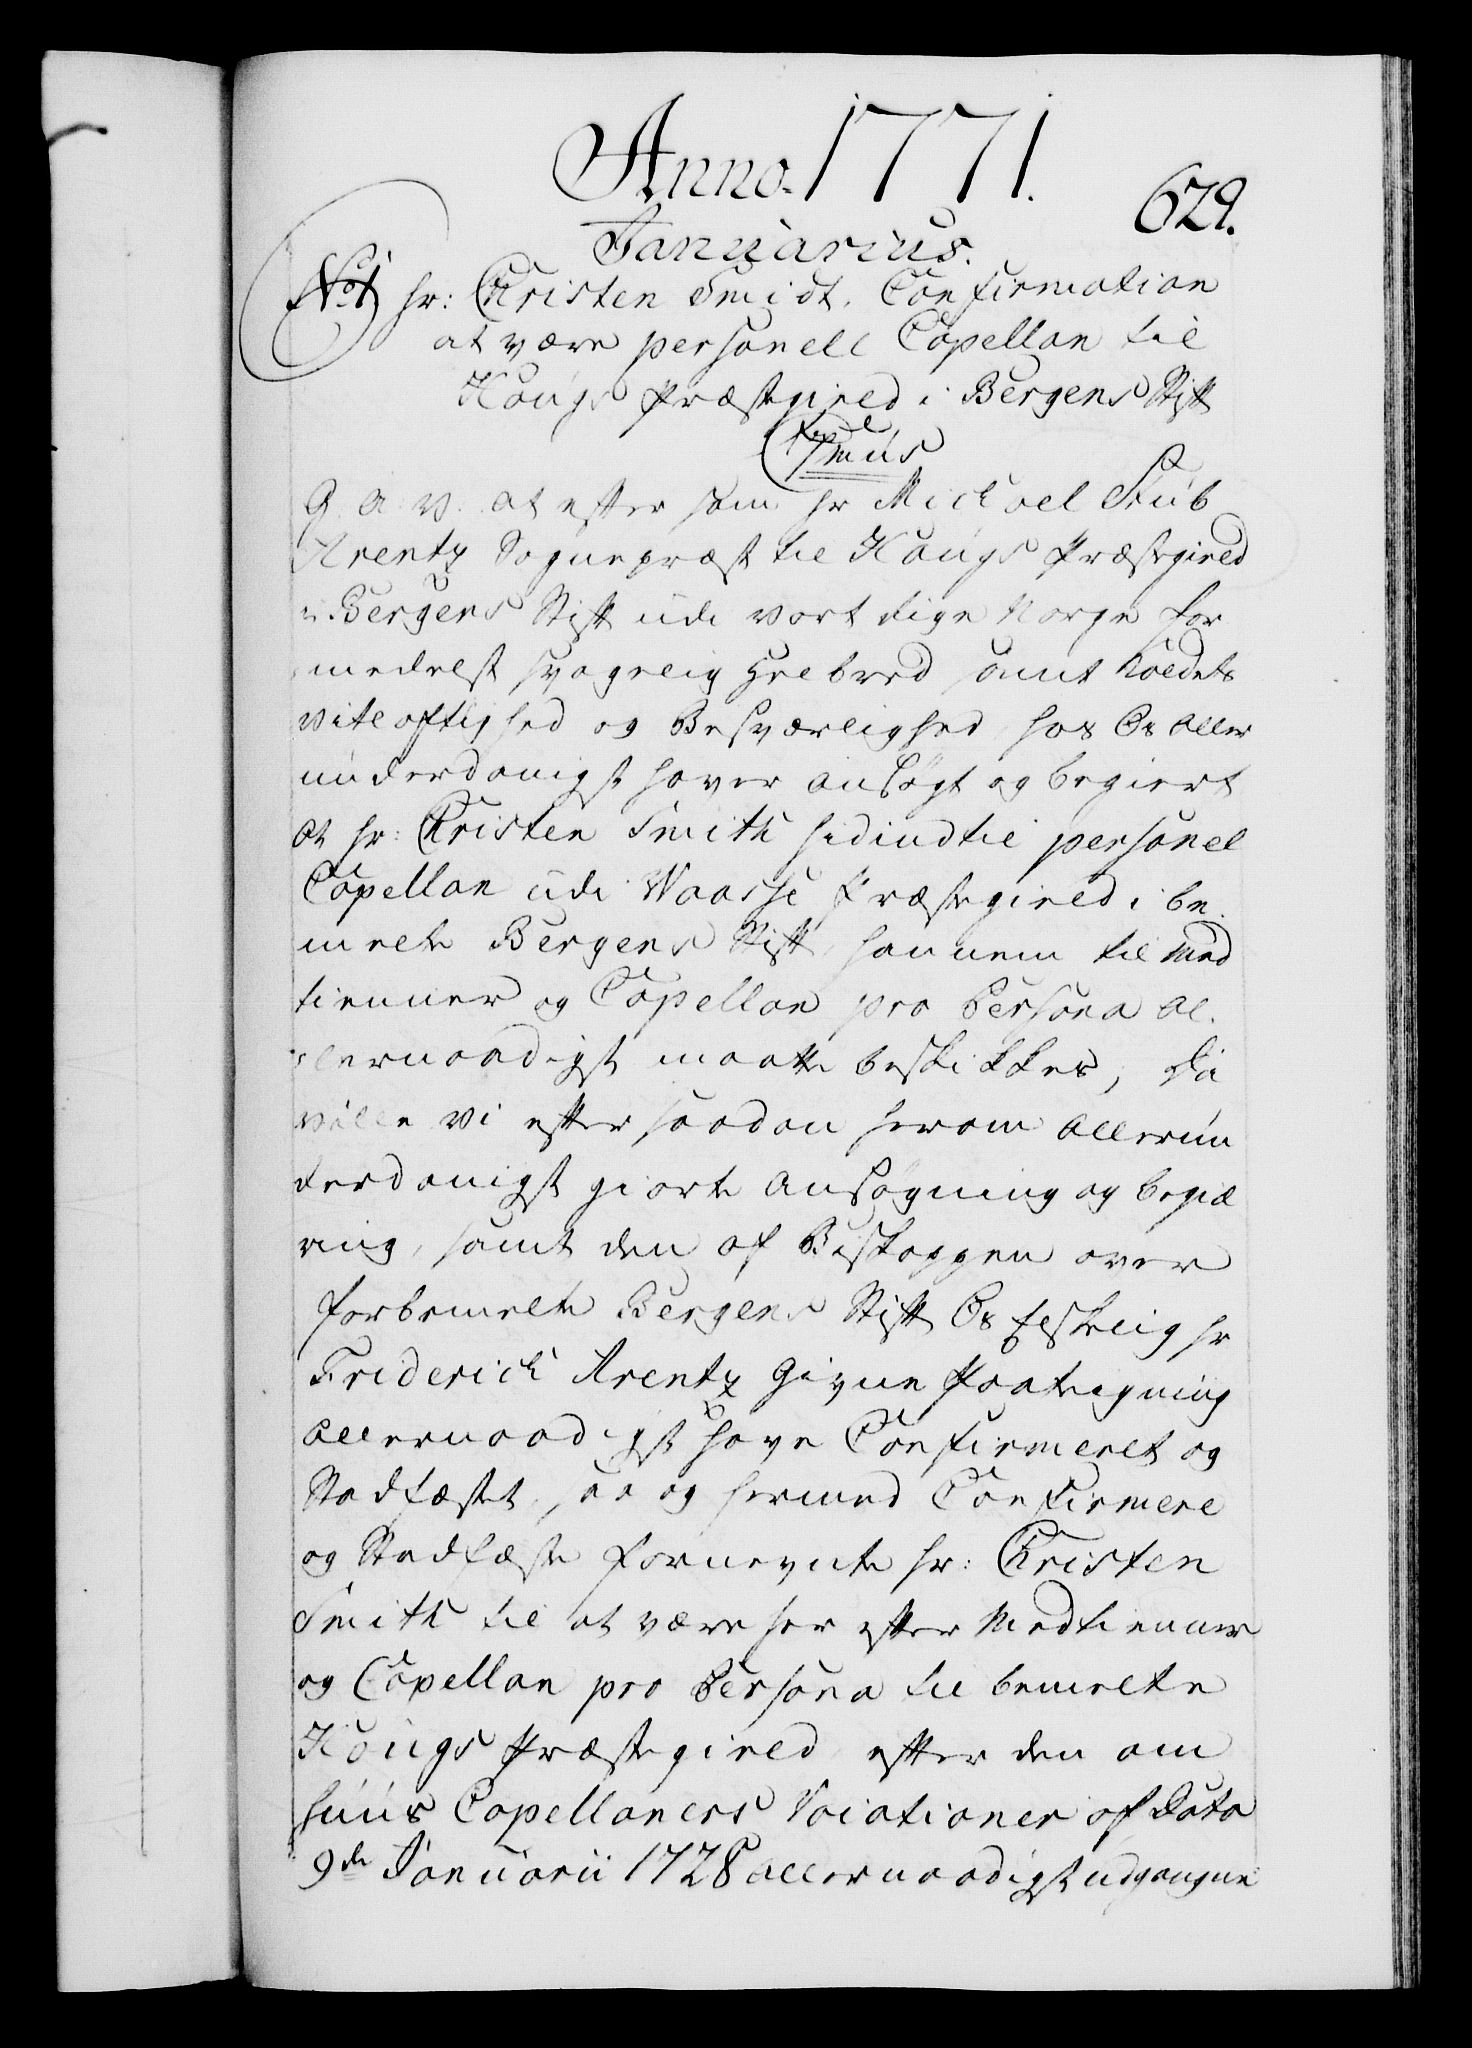 Anno. 1771.
629.
Januarius.
No 1 hr: Christen Smidt. Confirmation
at være personell Capellan til
Haugs Præstegield i Bergens Stift
C7mus
G. A. V. at efter som hr Michael Stub
Arentz Sognepræst til Haugs Præstegield
i Bergens Stift udi vort Rige Norge for
medelst svagelig Helbred samt Kaldets
vitløftighed og Besværlighed, hos Os aller
underdanigst haver ansøgt og begiert
at hr: Christen Smith hidindtil personel
Capellan udi Waasse Præstegield i be
melte Bergens Stift, hannem til Med
tienner og Capellan pro Persona al
lernaadigst maatte beskikkes, Da
ville vi efter saadan herom allerun
derdanigst giorte ansøgning og begiæ
ring, samt den af Biskoppen over
forbemelte Bergens Stift Os Elskelig hr
Friderich Arentz Givne Paategning
allernaadigst have Confirmeret og
Stadfæstet, saa og hermed Confirmere
og Stadfæste fornevnte hr: Christen
Smith til at være her efter Medtienner
og Capellan pro Persona til bemelte
Haugs Præstegield, efter den om
huus Capellaners Vocationer af Dato
9de Januarii 1728 allernaadigst udgangne